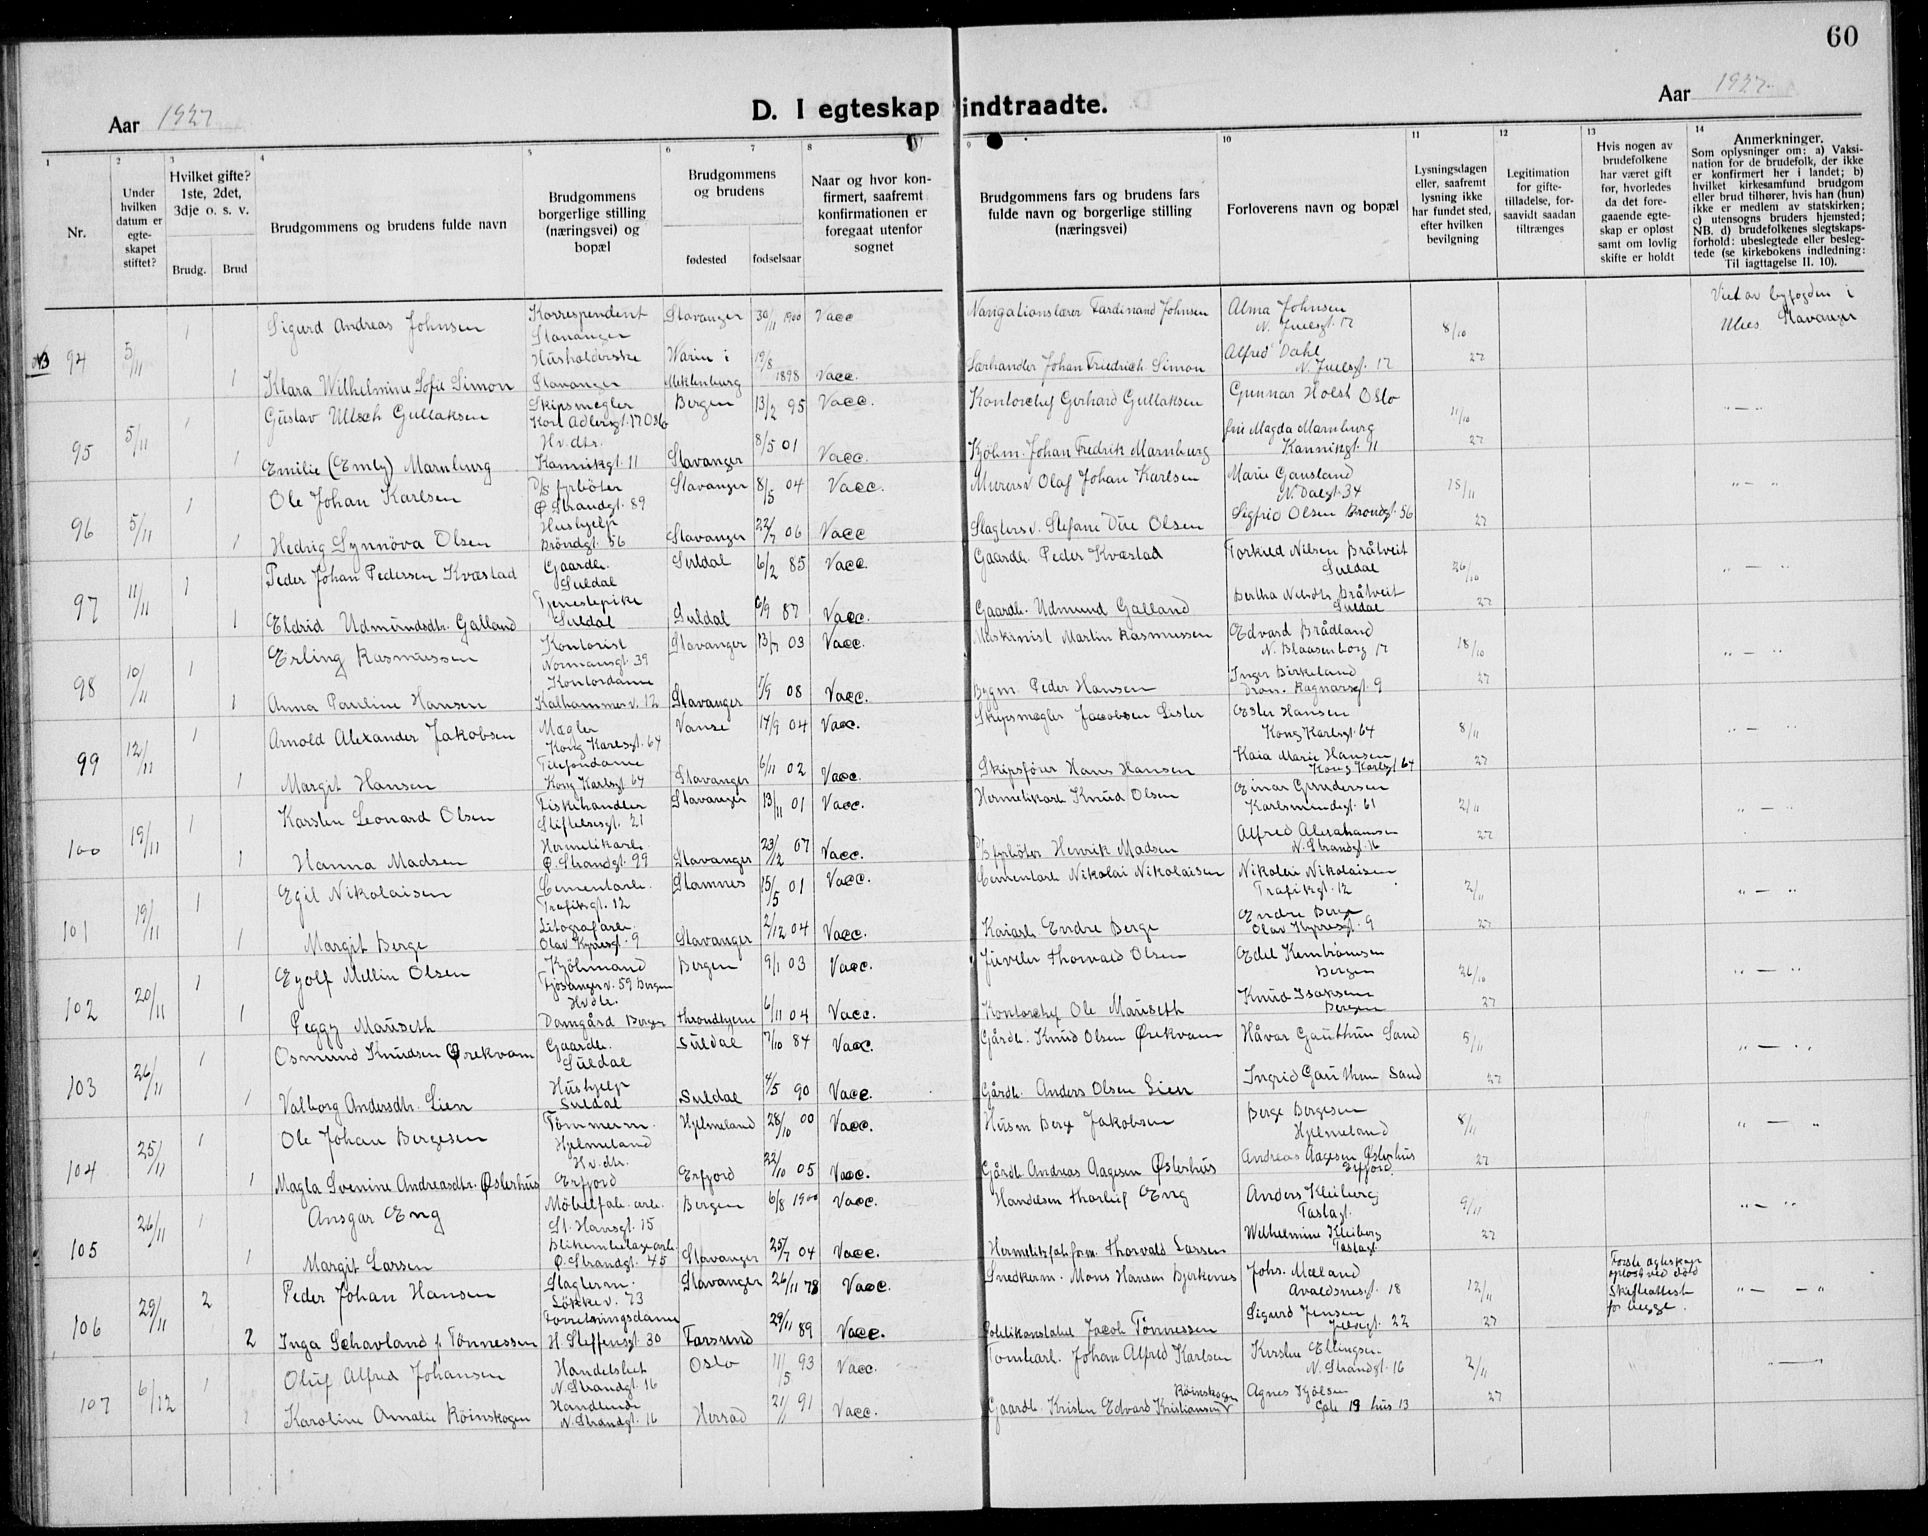 60
Aar 1927
D. I egteskap indtraadte.
Aar 1927
1 2 3 4 5 6 7 8 9 10 11 12 13 14
Nr.
Under hvilken datum er egte-skapet stiftet?
Hvilket gifte? 1ste, 2det, 3dje o. s. v.
Brudg. Brud
Brudgommens og brudens fulde navn
Brudgommens borgerlige stilling (næringsvei) og bopæl
Brudgommens og brudens
fødested fødselsaar
Naar og hvor kon-firmert, saafremt konfirmationen er foregaat utenfor sognet
Brudgommens fars og brudens fars fulde navn og borgerlige stilling (næringsvei)
Forloverens navn og bopæl
Lysningsdagen eller, saafremt lysning ikke har fundet sted, efter hvilken bevilgning
Legitimation for gifte-tilladelse, for-saavidt saadan tiltrænges
Hvis nogen av brudefolkene har været gift før, hvorledes da det fore-gaaende egte-skap er opløst samt om lovlig skifte er holdt
Anmerkninger.
Som oplysninger om: a) Vaksi-nation for de brudefolk, der ikke er konfirmert her i landet; b) hvilket kirkesamfund brudgom eller brud tilhører, hvis han (hun) ikke er medlem av statskirken; c) utensogns bruders hjemsted; NB. d) brudefolkenes slegtskaps-forhold: ubeslegtede eller besleg-tede (se kirkebokens indledning: Til iagttagelse II. 10).
NB 94 5/11 1 Sigurd Andreas Johnsen Korrespondent Stavanger Stavanger 30/11 1900 Vacc Navigationslærer Ferdinand Johnsen Alma Johnsen N. Juelsgt. 17 8/10 27 Viet av byfogden i Stavanger
1 Klara Wilhelmine Sofie Simon Husholderske Stavanger Warin i Meklenburg 19/8 1898 Vacc. Særhandler Johan Friedrich Simon Alfred Dahl N. Juelsgt. 17
95 5/11 1 Gustav Ullsch Gullaksen Skipsmegler Karl Adlersgt. 17 Oslo Bergen 13/2 95 Vacc. Kontorchef Gerhard Gullaksen Gunnar Holst Oslo 11/10 27 " — "
1 Emilie (Emly) Marnburg Hv. dtr. Kannikgt. 11 Stavanger 8/5 01 Vacc. Kjöbm. Johan Fredrik Marnburg fru Magda Marnburg Kannikgt. 11
96 5/11 1 Ole Johan Karlsen D/S fyrböter Ø Strandgt. 89 Stavanger 8/5 04 Vacc. Murersv Olaf Johan Karlsen Marie Gausland N. Dalgt. 34 18/11 27 " — "
1 Hedvig Synnöva Olsen Hushjelp Bröndgt. 56 Stavanger 22/7 06 Vacc Slagtersv. Stefane Olsen Sigfrid Olsen Brondgt. 56
97 11/11 1 Peder Johan Pedersen Kvæstad Gaardb. Suldal Suldal 6/2 85 Vacc. Gaardb. Peder Kvæstad Torkild Nilsen Bråtveit Suldal 26/10 27 " — "
1 Eldrid Udmundsdtr. Galland Tjenestepike Suldal Suldal 6/9 87 Vacc. Gaardb. Udmund Galland Bertha Nilsdtr Bråtveit Suldal
98 10/11 1 Erling Rasmussen Kontorist Normansgt. 39 Stavanger 13/7 03 Vacc. Maskinist Martin Rasmussen Edvard Brådland N. Blaasenborg 17 18/10 27 " — "
1 Anna Pauline Hansen Kontordame Kalhammerv. 12 Stavanger 1/9 08 Vacc. Bygm. Peder Hansen Inger Birkeland Dron. Ragnasgt. 9
99 12/11 1 Arnold Alexander Jakobsen Mægler Kong Karlsgt. 64 Vanse 14/9 04 Vacc. Skipsmægler Jacobsen Lister Ester Hansen Kong Karlsgt. 64 8/11 27 " —
1 Margit Hansen Telefondame Kong Karlsgt 64 Stavanger 6/11 02 Vacc. Skipsförer Hans Hansen Kaia Marie Hansen Kong Karlsgt 64
100 19/11 1 Karsten Leonard Olsen Fiskehandler Stiftelsesgt. 21 Stavanger 13/11 01 Vacc. Hermetikarb Knud Olsen Einar Gundersen Karlsmindegt. 61 2/11 27 " — "
1 Hanna Madsen Hermetikarb. Ø. Strandgt. 99 Stavanger 23/12 07 Vacc. D/S fyrböter Henrik Madsen Alfred Abrahamsen N. Strandgt. 16
101 19/11 1 Egil Nikolaisen Cementarb. Trafikgt. 12 Stamnes 15/5 01 Vacc. Cementarb Nikolai Nikolaisen Nikolai Nikolaisen Trafikgt. 12 2/11 27 " — "
1 Margit Berge Litografarb. Olav Kyrresgt. 9 Stavanger 2/12 04 Vacc. Kaiarb Endre Berge Endre Berge Olav Kyrresgt. 9
102 20/11 1 Eyolf Mellin Olsen Kjöbmand Fjösangerv. 59 Bergen Bergen 9/1 03 Vacc. Juveler Thorvald Olsen Edel Bergen 26/10 27 " — "
1 Peggy Mauseth Hv dtr. Damgård Bergen Throndhjem 6/11 04 Vacc. Kontorchef Ole Mauseth Knud Isaksen Bergen
103 26/11 1 Osmund Knudsen Ørekvam Gaardb. Suldal Suldal 7/10 84 Vacc. Gårdb. Knud Olsen Ørekvam Håvar Gauthun Sand 5/11 27 " — "
1 Valborg Andersdtr. Lien Hushjelp Suldal Suldal 4/5 90 Vacc. Gårdb. Anders Olsen Lien Ingrid Gauthun Sand
104 25/11 1 Ole Johan Bergesen Tömmerm. Hjelmeland Hjelmeland 28/10 00 Vacc. Husm Berge Jakobsen Berge Bergesen Hjelmeland 8/11 27 " — "
1 Magla Svenine Andreasdtr. Østerhus Hv. dtr. Erfjord Erfjord 22/10 05 Vacc. Gårdb. Andreas Aagesen Østerhus Andreas Aagesen Østerhus Erfjord
105 26/11 1 Ansgar Eng Möbelfab. arb. St. Hansgt. 15 Bergen 6/8 1900 Vacc. Handelsm Thorleif Eng Anders Kleiberg Tastagt. 9/11 27 " — "
1 Margit Larsen Blikemballagearb. Ø. Strandgt. 45 Stavanger 25/7 04 Vacc. Hermetikfab. form. Thorvald Larsen Wilhelmine Kleiberg Tastagt
106 29/11 2 Peder Johan Hansen Slagterm. Løkkev. 73 Stavanger 26/11 78 Vacc. Snedkerm. Mons Hansen Bjerkenes Johs. Mæland Avaldsnesgt. 18 12/11 27 Første ægteskap opløst ved död Skifteattest for begge. " — "
2 Inga Schavland f. Tönnessen Forretningsdame H. Steffensgt. 30 Farsund 29/11 89 Vacc. Politikonstabel Jacob Tönnessen Sigurd Jensen 22
107 6/12 1 Oluf Alfred Johansen Handelsbet N. Strandgt. 16 Oslo 11/5 93 Vacc. Tomtearb. Johan Alfred Karlsen Kirsten Ellingsen N. Strandgt. 16 2/11 27 " — "
1 Karoline Amalie Röinskogen Handlende N. Strandgt. 16 Hersad 21/1 91 Vacc. Gaardb. Kristen Edvard Kristiansen Röinskogen Agnes Kjölsen Gate 19 hus 13